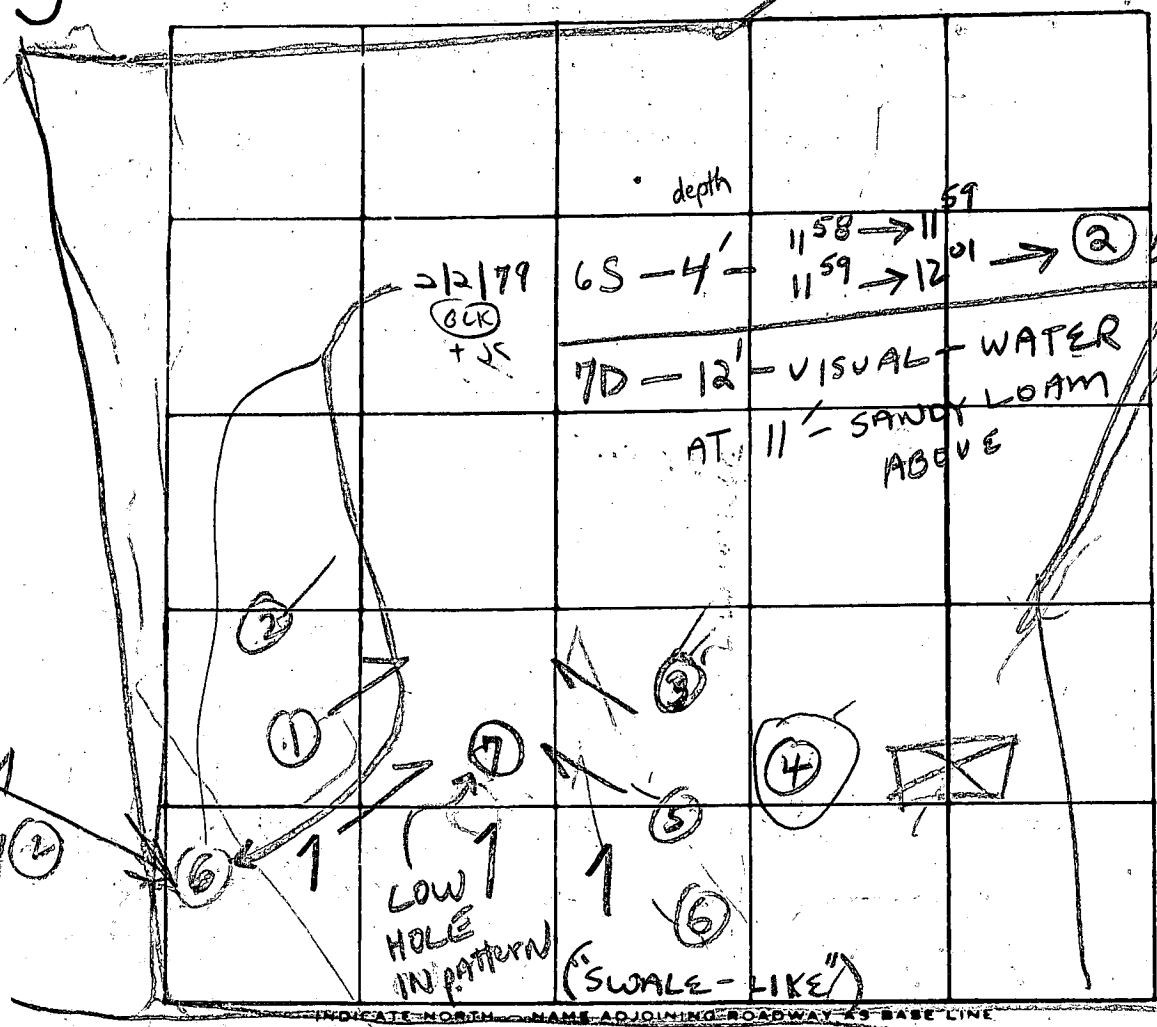 depth
2/2/79
6S - 4' - 11 58 → 11 59
11 59 → 12 01 → 2
+ JC
7D - 12' - VISUAL - WATER
AT 11' - SANDY LOAM
ABOVE
2
1
7
3
4
5
6
6
2
LOW
HOLE
IN PATTERN
("SWALE-LIKE")
INDICATE NORTH - NAME ADJOINING ROADWAY AS BASE LINE